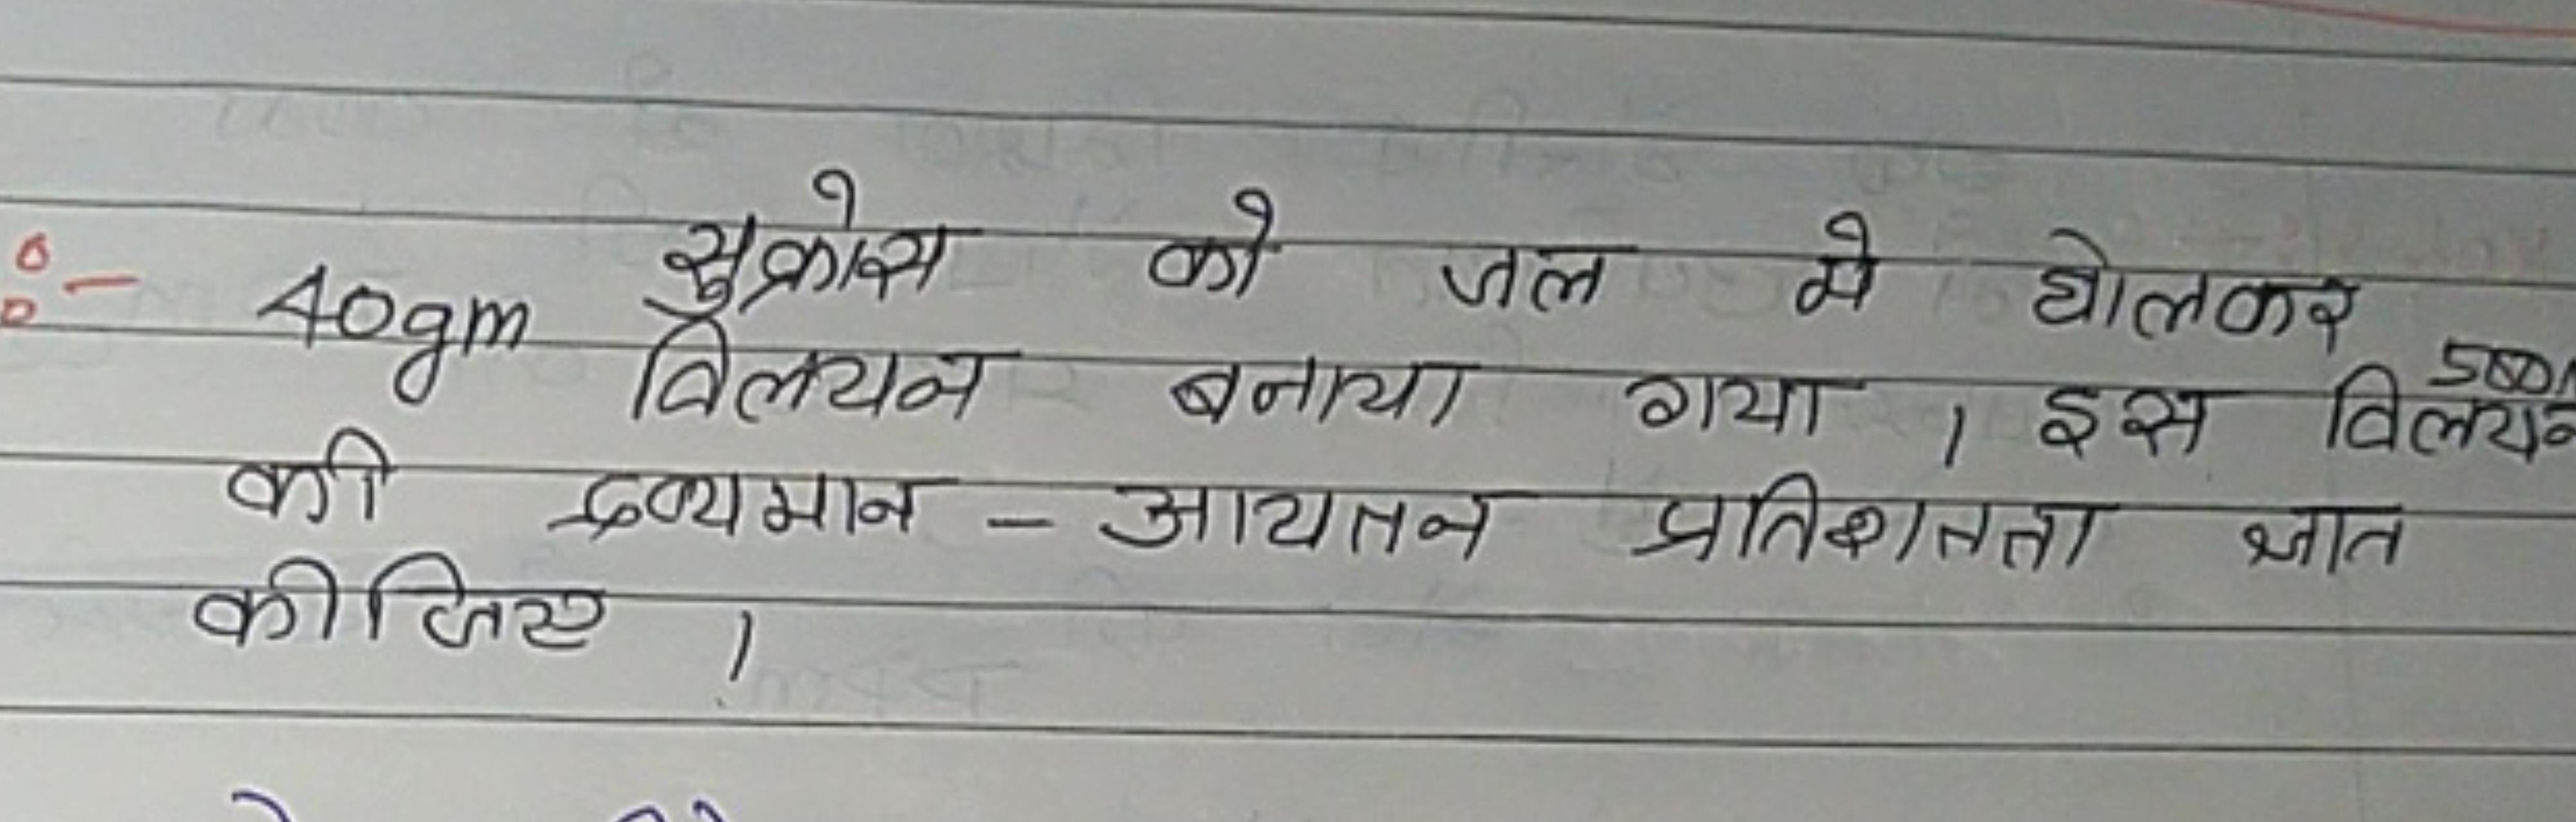 :- 40gm सुक्रोस को जल मे घोलकर
विलयन बनाया गया । इस विलयन
की द्रव्यमान - आयतन प्रतिशतता ज्ञात
कीजिए ।